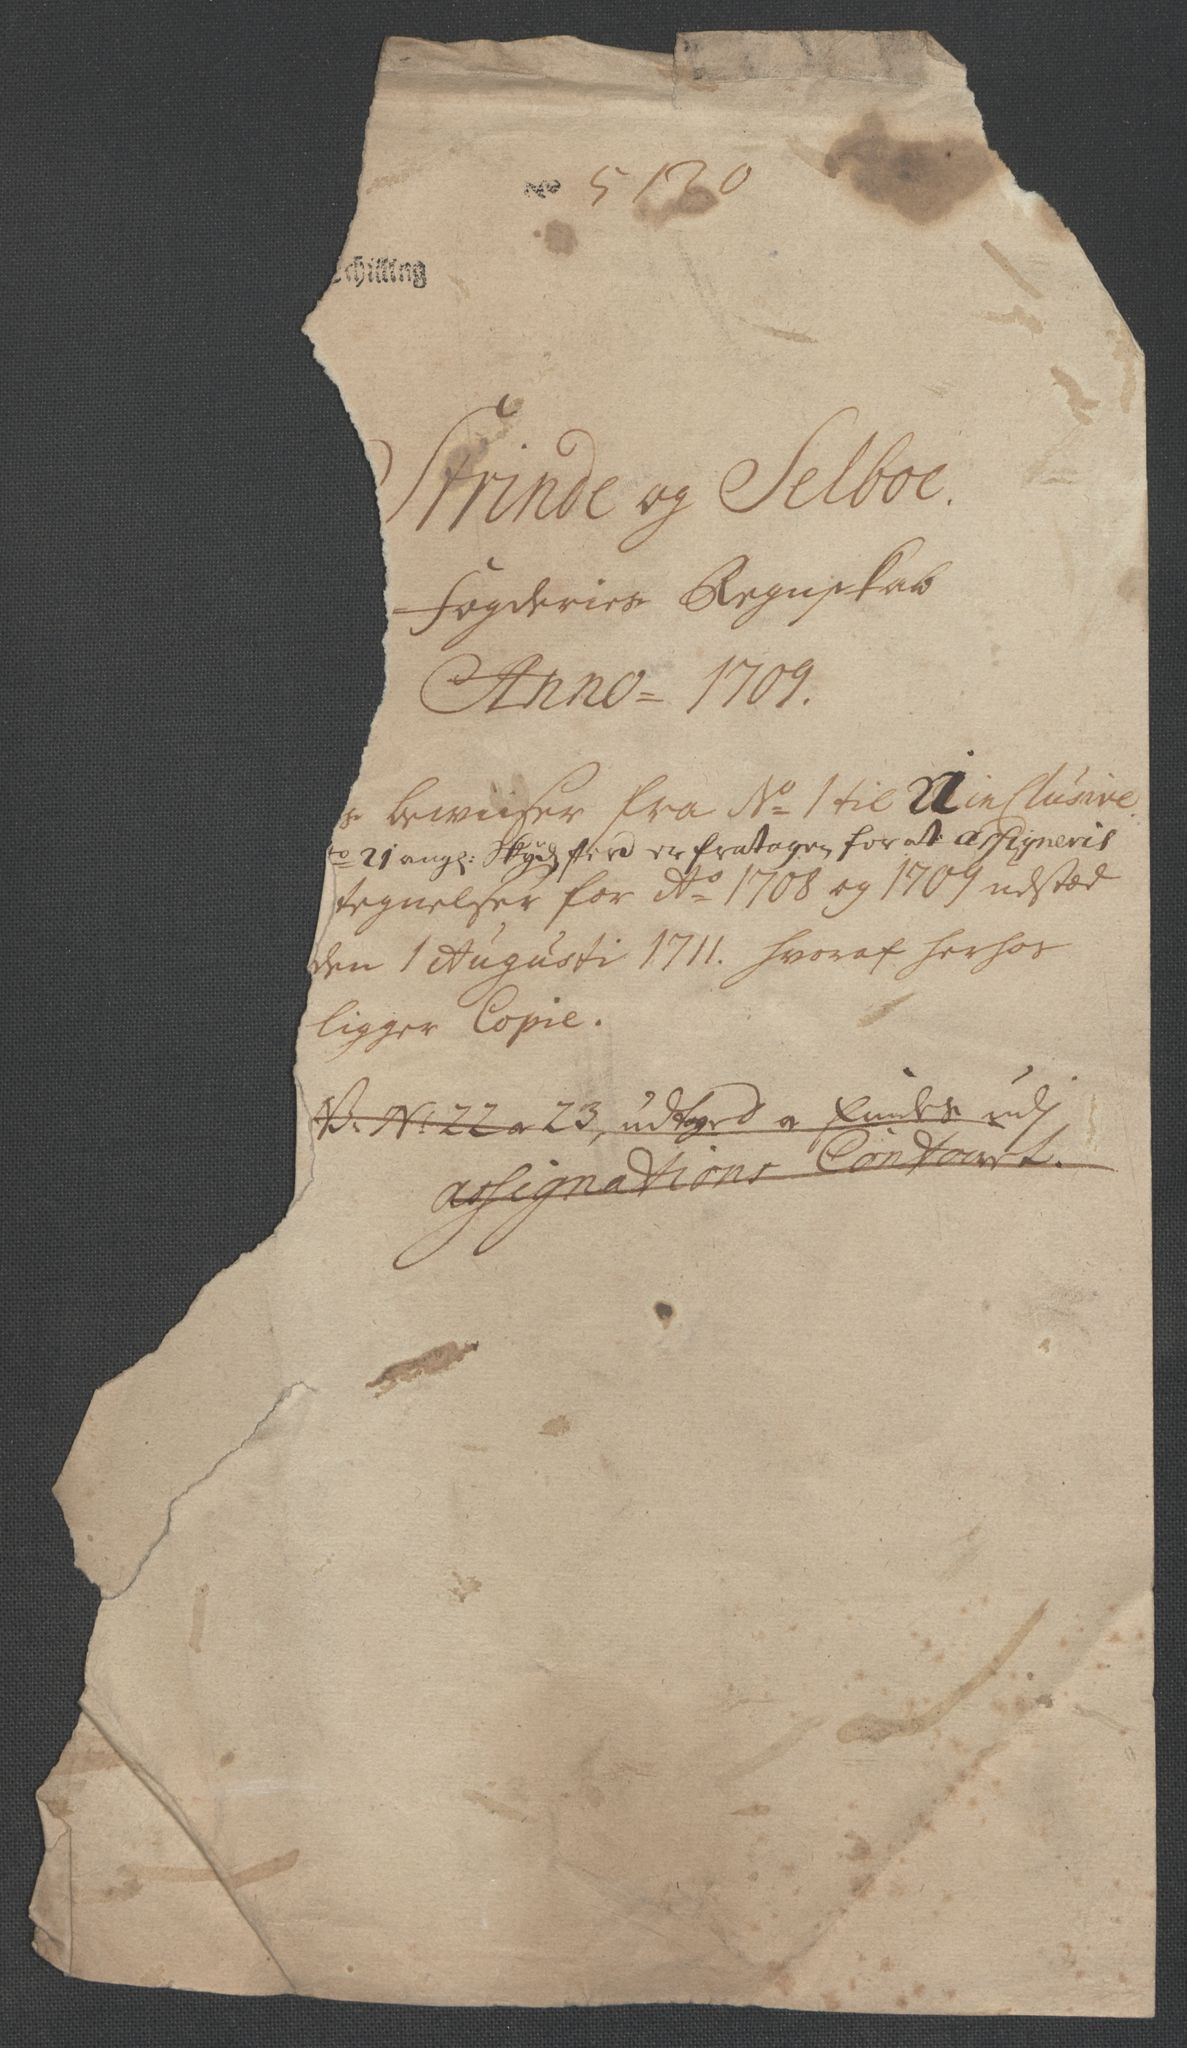 No 5120
Schilling
Strinde og Selboe.
Fogderies Regnskab
Anno = 1709.
bewiiser fra No 1 til 21 inclusive
21 ang: Skydsferd er fratagen for at assigneris
tegnelser for Ao 1708 og 1709 udstæd
den 1 Augusti 1711. hvoraf herhos
ligger Copie.
No 22 a 23, udtagd a findes udj
assignations Contoiret.